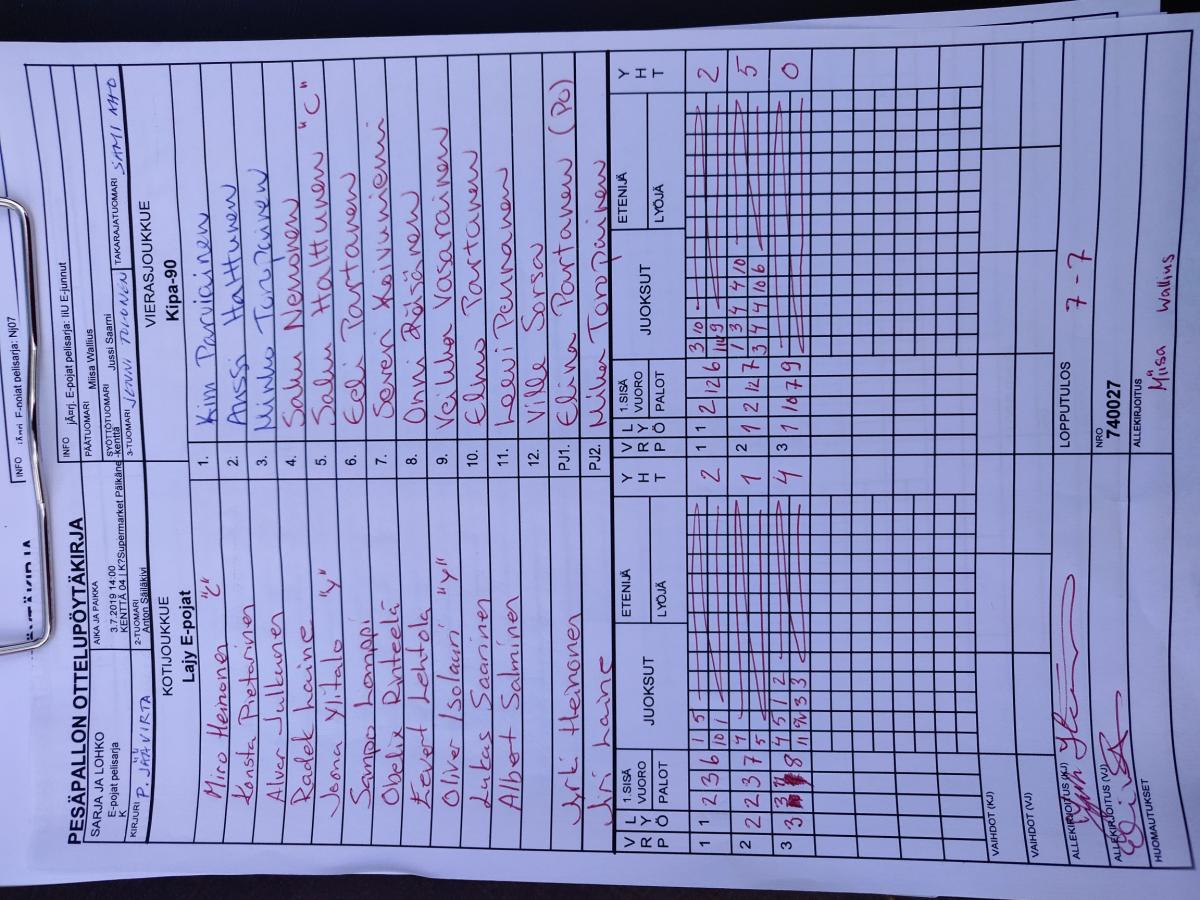 INFO
F-nojat pelisarja: Nj07
PESÄPALLON OTTELUPÖYTÄKIRJA
INFO jÃ¤rj. E-pojat pelisarja: IIU E-junnut
SARJA JA LOHKO
E-pojat pelisarja
K
AIKA JA PAIKKA
3.7.2019 14:00
KENTTÄ 04 | K?Supermarket Pälkäne -kenttä
PÄÄTUOMARI Miisa Wallius
SYÖTTÖTUOMARI Jussi Saarni
KIRJURI P. JÄÄVIRTA
2-TUOMARI
Anton Säiläkivi
3-TUOMARI JENNI
TAKARAJATUOMARI SAMI AHO
KOTIJOUKKUE
Lajy E-pojat
VIERASJOUKKUE
Kipa-90
Miro Heinonen "C" 1. Kim Parviainen
Konsta Pietarinen 2. Anssi Hattunen
Alvar Julkunen 3. Minka Toropainen
Radek Laine 4. Saku Nenonen
Joona Ylitalo "Y" 5. Salun Halttunen "C"
Sampo Lamppi 6. Eeli Partanen
Obelix Rinteelä 7. Severi Keijuniemi
Eevert Lehtola 8. Onni Räisänen
Oliver Isolauri "Y" 9. Veikka Vasarainen
Lukas Saarinen 10. Elmo Partanen
Albert Salminen 11. Leevi Pennanen
12. Ville Sorsa
Jyrki Heinonen PJ1. Elina Partanen (PO)
Jiri Laine PJ2. Mika Toropainen
V R P L Y Ö 1.SISÄ VUORO PALOT JUOKSUT ETENIJÄ LYÖJÄ Y H T V R P L Y Ö 1.SISÄ VUORO PALOT JUOKSUT ETENIJÄ LYÖJÄ Y H T
1 2 3 6 1 5 2 1 1 2 12 6 3 10 2
10 1
2 2 3 7 4 1 2 1 2 12 7 1 3 4 4 10 5
5 3 4 4 10 6
3 3 8 4 5 1 2 4 3 1 10 7 9 0
11 3 3
VAIHDOT (KJ)
VAIHDOT (VJ)
ALLEKIRJOITUS (KJ)
LOPPUTULOS 7-7
ALLEKIRJOITUS (VJ)
NRO
740027
HUOMAUTUKSET
ALLEKIRJOITUS
Miisa Wallius